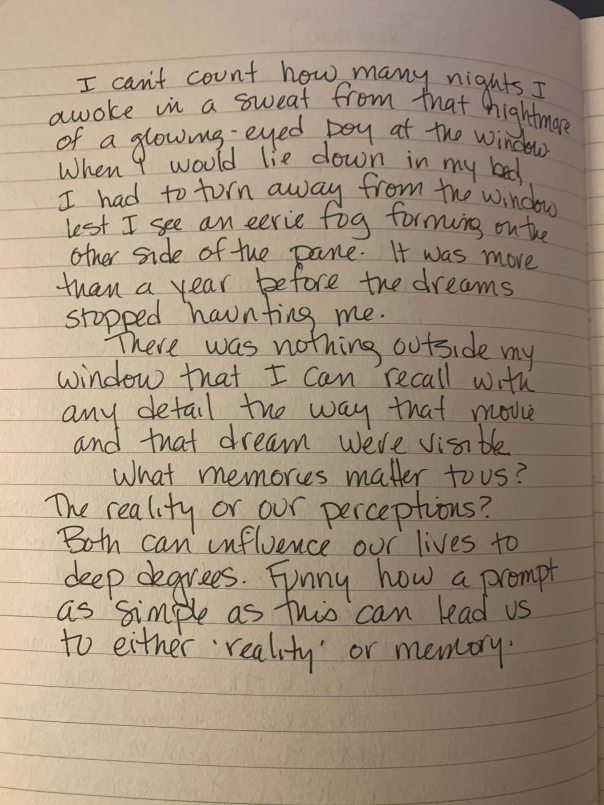 I can't count how many nights I
awoke in a sweat from that nightmare
of a glowing-eyed boy at the window.
When I would lie down in my bed,
I had to turn away from the window
lest I see an eerie fog forming on the
other side of the pane. It was more
than a year before the dreams
stopped haunting me.
There was nothing outside my
window that I can recall with
any detail the way that movie
and that dream were visible
What memories matter to us?
The reality or our perceptions?
Both can influence our lives to
deep degrees. Funny how a prompt
as simple as this can lead us
to either 'reality' or memory.